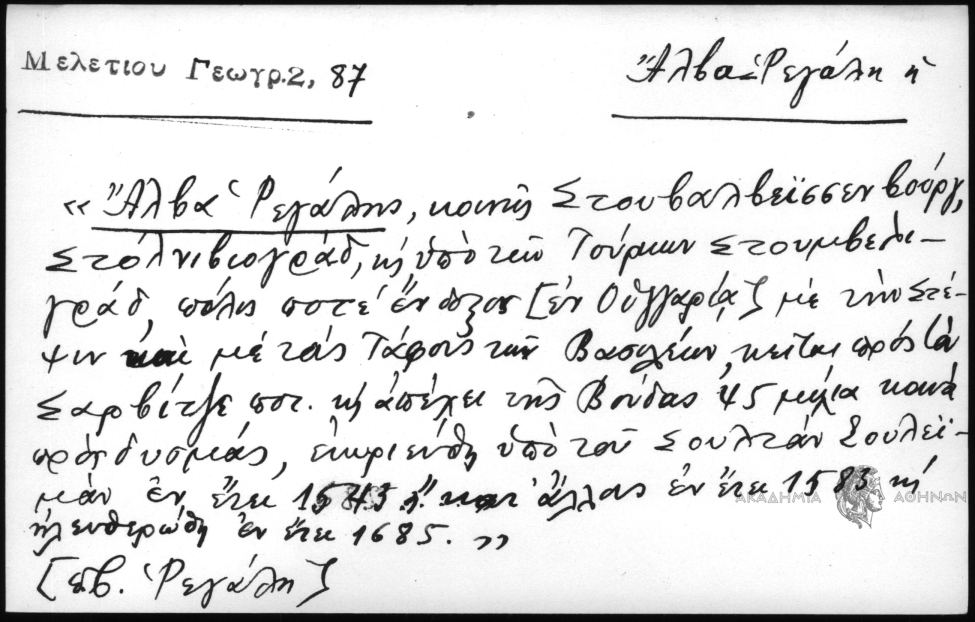 Μελετίου Γεωγρ. 2, 87
Ἄλβα-Ῥεγάλη ἡ
« Ἄλβα Ῥεγάλης, κοινῆς Στουβαλβεϊσσενβούργ,
Στόλνιβιογράδ, κ ὑπὸ τῶν Τούρκων Στουμβελι-
γράδ, πόλις ποτὲ ἔνδοξος [ἐν Οὐγγαρίᾳ] μὲ τὴν Στέ-
ψιν καὶ μὲ τὰς Τάφους τῶν Βασιλέων, κεῖται πρὸς τὸν
Σαρβίτζε ποτ. κ ἀπέχει τῆς Βούδας 45 μίλια κατὰ
πρὸς δυσμάς, ἐκυριεύθη ὑπὸ τοῦ Σουλτὰν Σουλεϊ-
μὰν ἐν ἔτει 1543 ἢ κατ' ἄλλας ἐν ἔτει 1583 κ
ἠλευθερώθη ἐν ἔτει 1685. »
[εβ. Ῥεγάλη]
ΑΚΑΔΗΜΙΑ ΑΘΗΝΩΝ